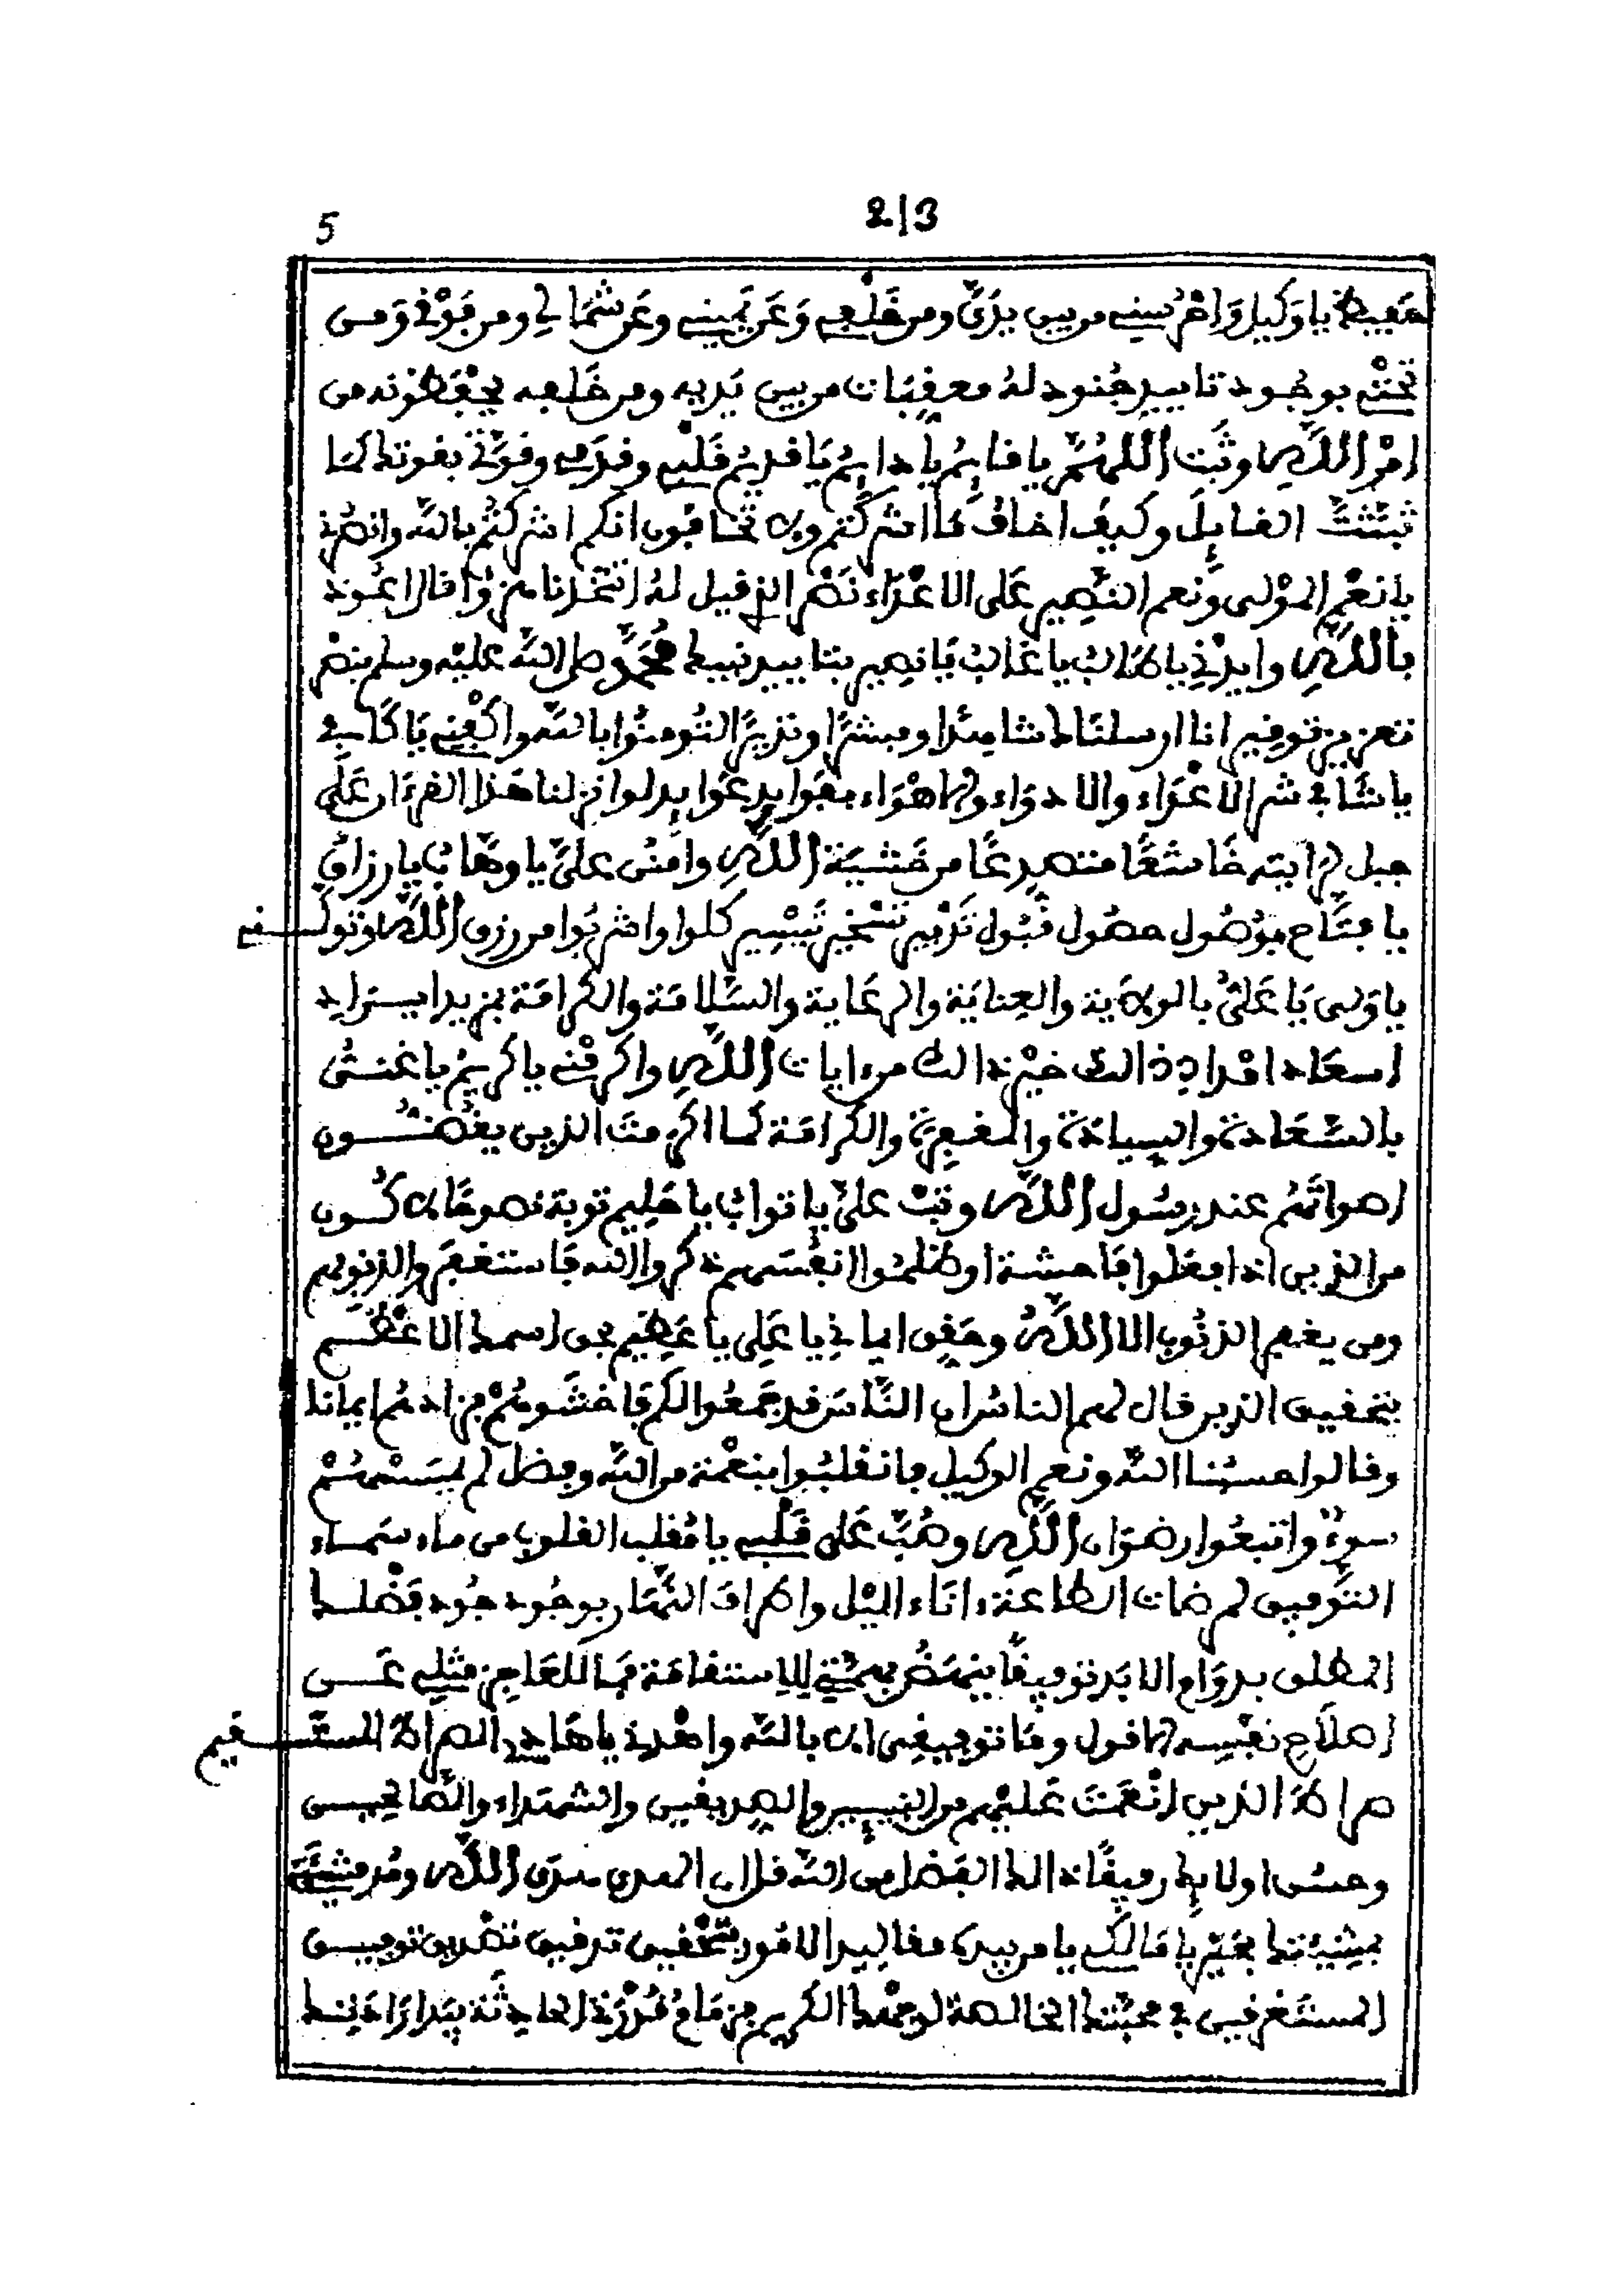 2/3
5
حفيظ يا وكيل واحرسني من بين يدي ومن خلفي وعن يميني وعن شمالي ومن فوقي ومن
تحتي بوجود تاييد جنود له معقبات من بين يديه ومن خلفه يحفظونه من
امر الله وثبت اللهم يا قايم يا دايم يا قديم قلبي وقدمي وقوتي بقوتك كما
ثبتت القايل وكيف اخاف ما اشركتم ولا تخافون انكم اشركتم بالله وانصرني
يا نعم المولى ونعم النصير على الاعداء نصر الذي قيل له اتتخذنا هزوا قال اعوذ
بالله وايدني يا طالب يا غالب يا نصير بتاييد نبيك محمد صلى الله عليه وسلم بنصر
تعزيز توقير انا ارسلناك شاهدا ومبشرا ونذيرا لتومنوا بالله واكفني يا كافي
يا شافي شر الاعداء والادواء والاهواء بفوايد عوايد لو انزلنا هذا القرءان على
جبل لرايته خاشعا متصدعا من خشية الله وامنن علي يا وهاب يا رزاق
يا فتاح بوصول حصول قبول تدبير تسخير تيسير كلوا واشربوا من رزق الله وتولني
يا ولي يا علي بالولاية والعناية والرعاية والسلامة والكرامة بمزيد ايراد
اسعاد امداد ذالك خير ذالك من ءايات الله واكرمني يا كريم يا غني
بالسعادة والسيادة والمغفرة والكرامة كما اكرمت الذين يغضون
اصواتهم عند رسول الله وتب علي يا تواب يا حليم توبة نصوحا لاكون
من الذين اذا فعلوا فاحشة او ظلموا انفسهم ذكروا الله فاستغفروا لذنوبهم
ومن يغفر الذنوب الا الله وحقق ايماني يا علي يا عظيم بحق اسمك الاعظم
بتحقيق الذين قال لهم الناس ان الناس قد جمعوا لكم فاخشوهم فزادهم ايمانا
وقالوا حسبنا الله ونعم الوكيل فانقلبوا بنعمة من الله وفضل لم يمسسهم
سوء واتبعوا رضوان الله وصب على قلبي يا مقلب القلوب من ماء سماء
التوفيق لمرضات الطاعة ءاناء اليل واطراف النهار بوجود جود فضلك
المطلق بدوام الابد توفيقا ينهض بهمتي للاستقامة فما للعاجز مثلي عن
اصلاح نفسه الا قول وما توفيقي الا بالله واهدني يا هادي الصراط المستقيم
صراط الذين انعمت عليهم من النبيين والصديقين والشهداء والصالحين
وحسن اولايك رفيقا ذالك الفضل من الله قل ان الهدى هدى الله ومد مشيئتي
بمشيئتك بخير يا مالك يا من بيده مقاليد الامور بتحقيق تدقيق تصديق توفيق
المستغرقين في محبتك الخالصة لوجهك الكريم بزمام قدرتي الحادثة بيد ارادتك